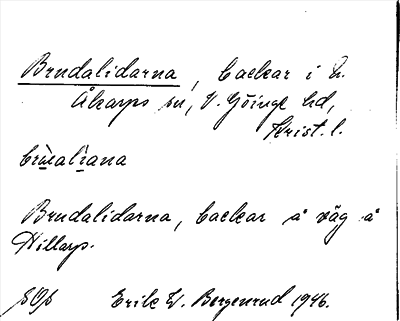 Brudalidarna, backar i N.
Åkarps sn, V. Göinge hd,
Krist. l.
Brudalidarna, backar å väg å
Hillarp.
Erik W. Borgenrud 1946.